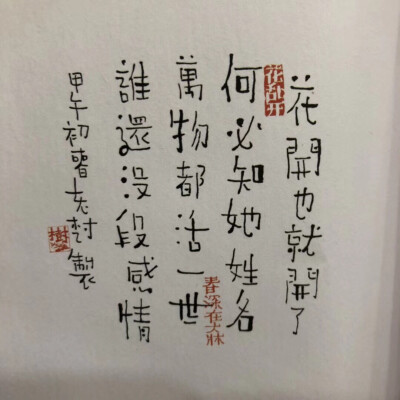 花開也就開了
花乱开
何必知她姓名
萬物都活一世
誰還没段感情
甲午初春老树製